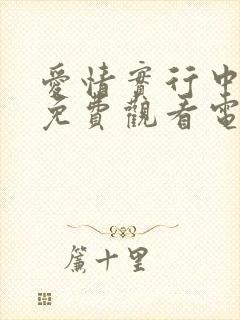 愛情實行中
免費觀看電
簾十里